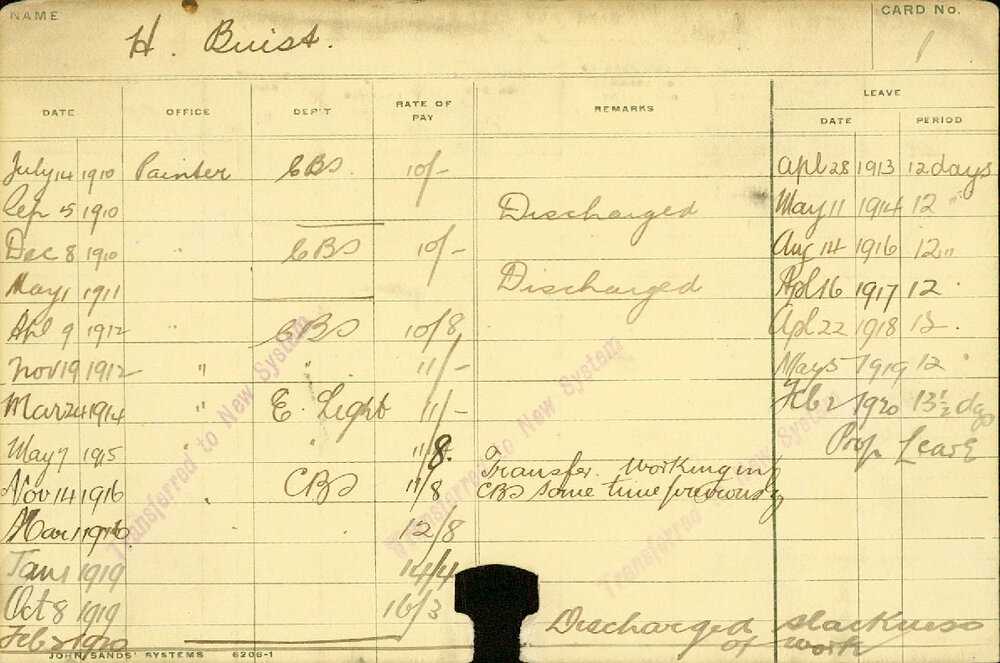 NAME H. Buist. CARD No. 1
LEAVE
DATE OFFICE DEP'T RATE OF PAY REMARKS DATE PERIOD
July 14 1910 Painter CBS 10/- Apl 28 1913 12 days
Sep 5 1910 Discharged May 11 1914 12 "
Dec 8 1910 " CBS 10/- Aug 14 1916 12 "
May 1 1911 Discharged Apl 16 1917 12 .
Apl 9 1912 " CBS 10/8 Apl 22 1918 12 .
Nov 19 1912 " " 11/- May 5 1919 12
Mar 24 1914 " E. Light 11/- Feb 2 1920 13½ dys
May 7 1915 " " 11/8. Prop Leave
Nov 14 1916 " CBS 11/8 Transfer. Working in
CBS some time previously
Mar 1 1916 12/8
Jan 1 1919 14/4
Oct 8 1919 16/3
Feb 2 1920 Discharged slackness
of work
Transferred to New System
Transferred to New System
Transferred to New System
JOHN SANDS' SYSTEMS 6206-1